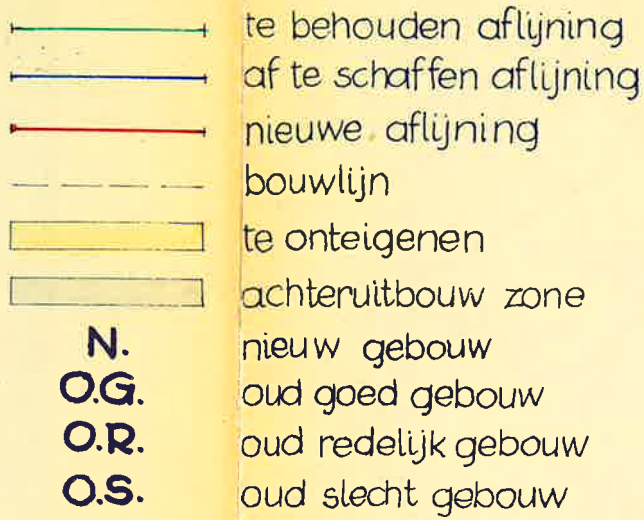 te behouden aflijning
af te schaffen aflijning
nieuwe aflijning
bouwlijn
te onteigenen
achteruitbouw zone
N. nieuw gebouw
O.G. oud goed gebouw
O.R. oud redelijk gebouw
O.S. oud slecht gebouw